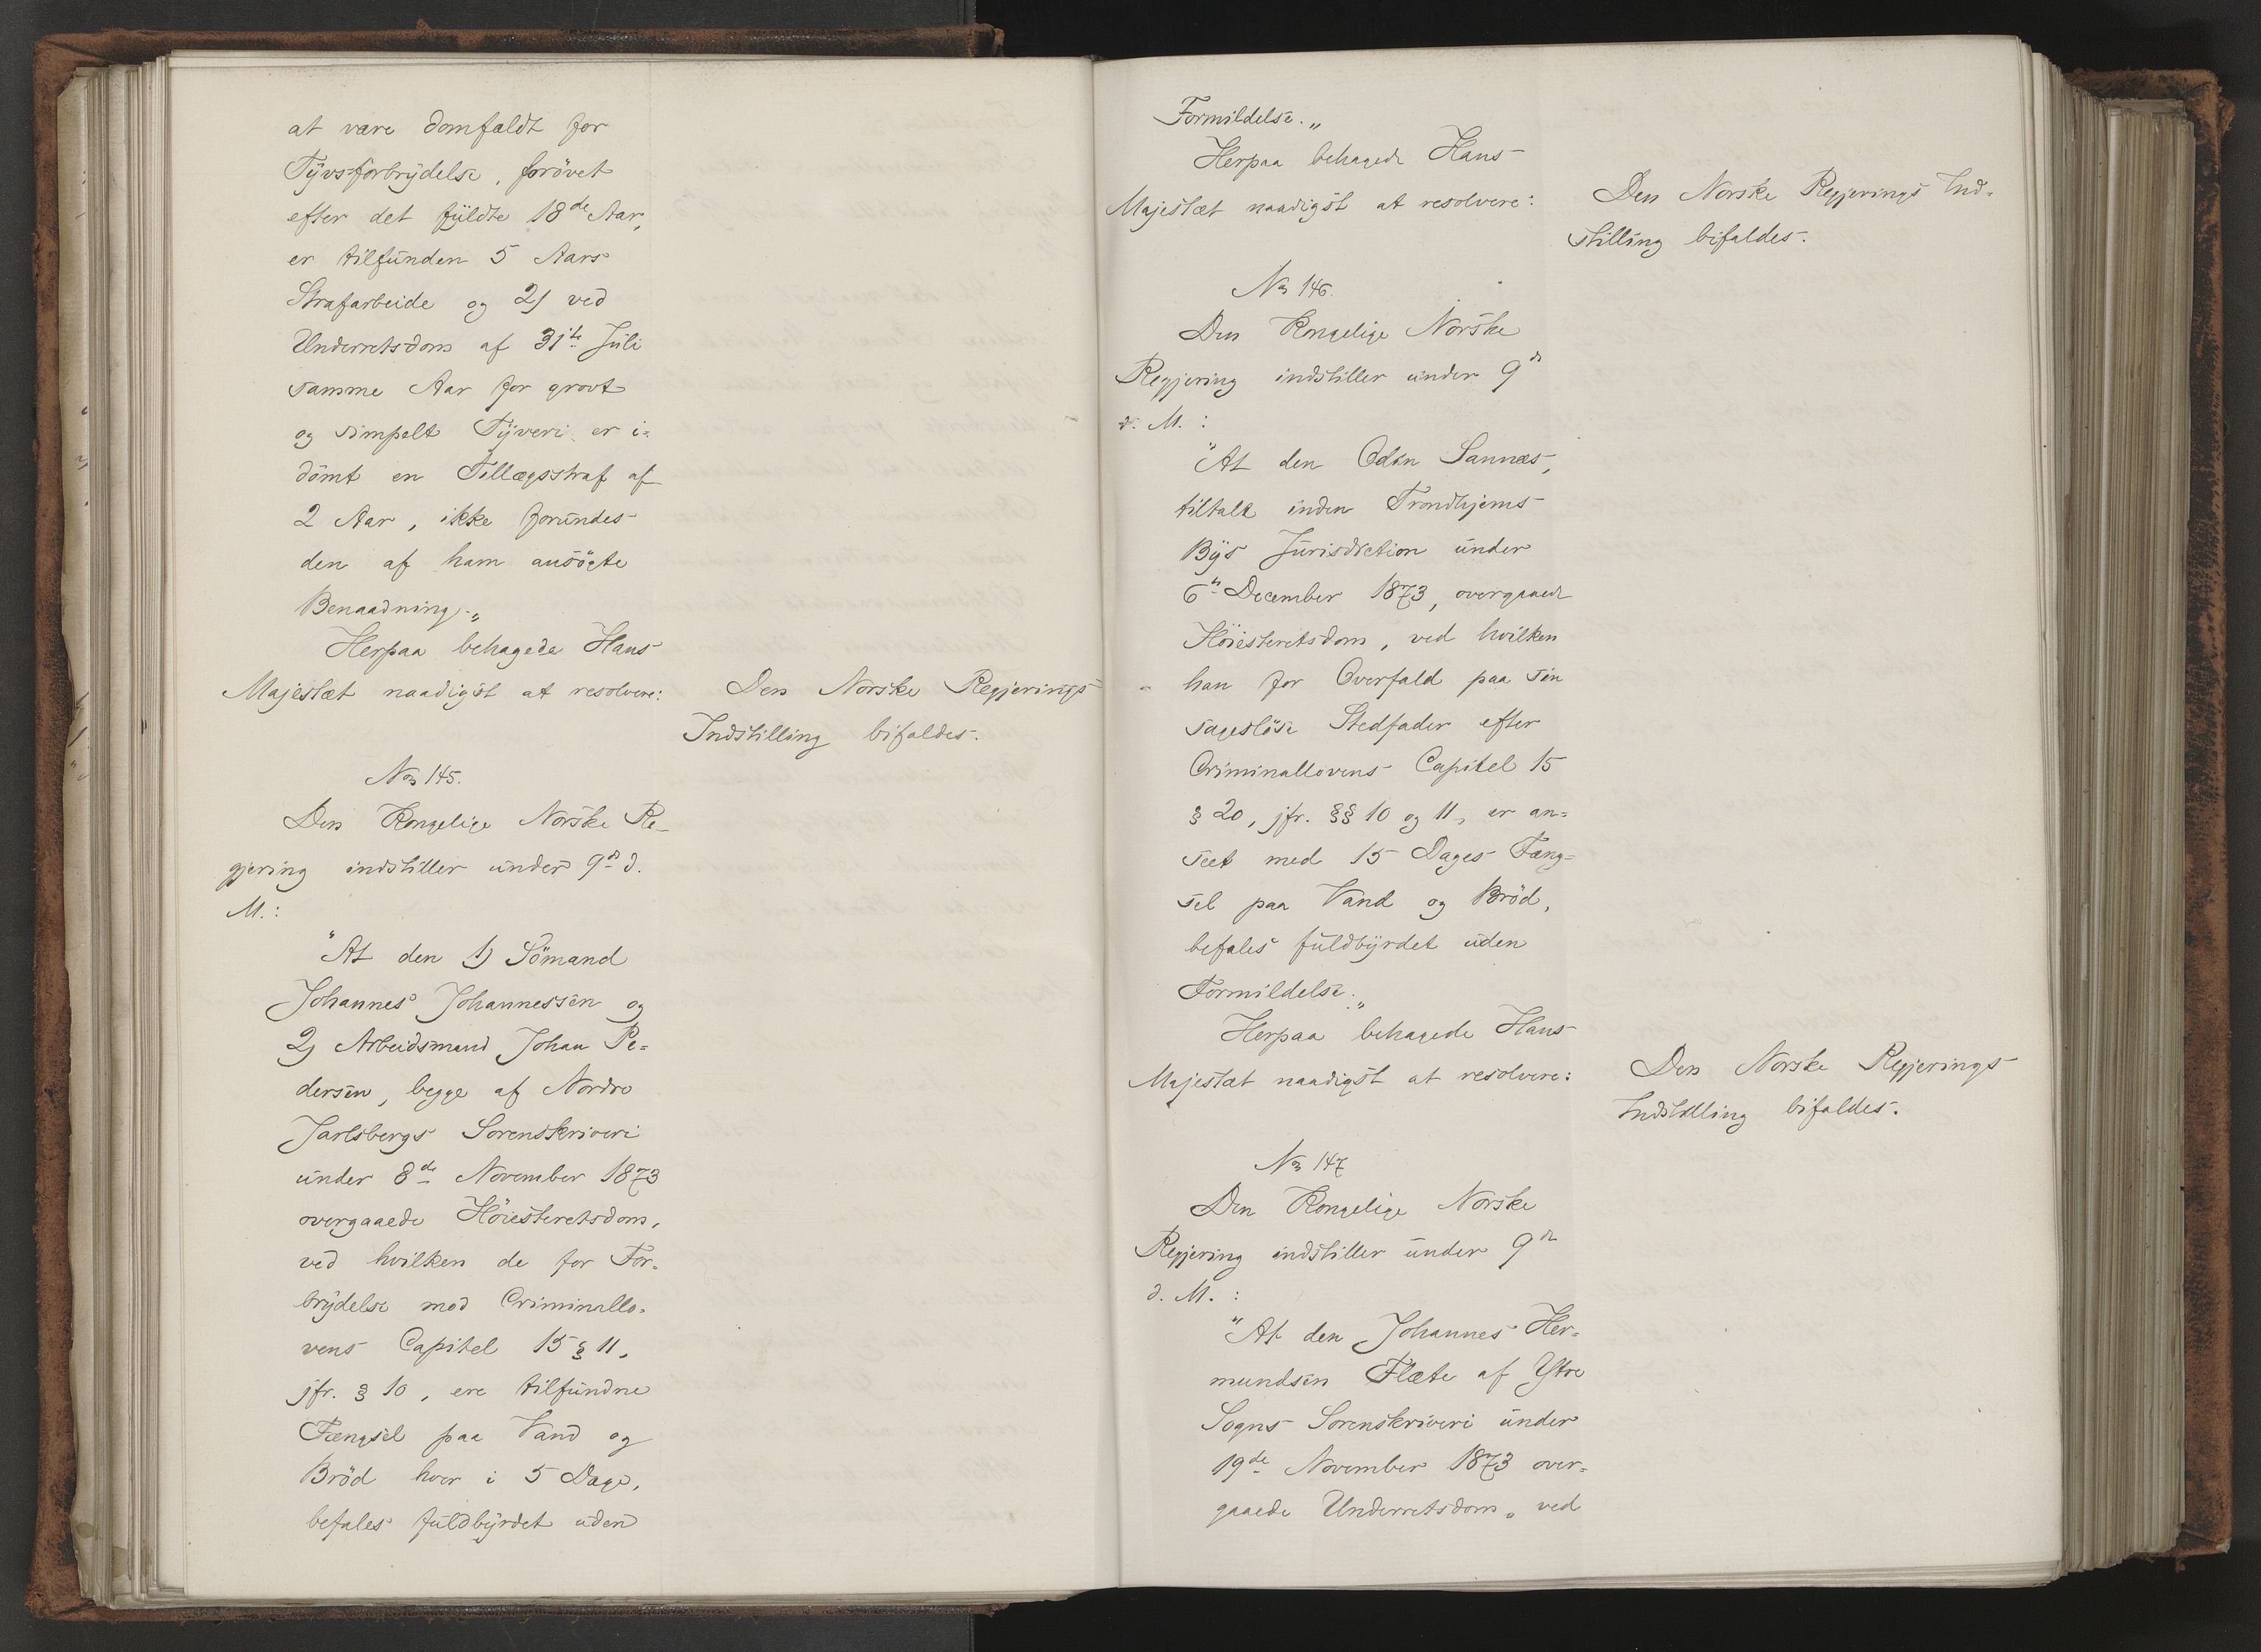 at være domfældt for
Tyvsforbrydelse, forövet
efter det fyldte 18de Aar,
er tilfunden 5 Aars
Strafarbeide og 2) ved
Underretsdom af 31te Juli
samme Aar for grovt
og simpelt Tyveri er i-
dömt en Tillægsstraf af
2 Aar, ikke forundes
den af ham ansögte
Benaadning."
Herpaa behagede Hans
Majestæt naadigst at resolvere:
Den Norske Regjerings
Indstilling bifaldes.
No 145.
Den Kongelige Norske Re-
gjering indstiller under 9de d.
M.:
"At den 1) Sömand
Johannes Johannessen og
2) Arbeidsmand Johan Pe-
dersen, begge af Nordre
Jarlsbergs Sorenskriveri
under 8de November 1873
overgaaede Höiesteretsdom,
ved hvilken de for For-
brydelse mod Criminallo-
vens Capitel 15 § 11,
jfr. § 10, ere tilfundne
Fængsel paa Vand og
Bröd hver i 5 Dage,
befales fuldbyrdet uden
Formildelse."
Herpaa behagede Hans
Majestæt naadigst at resolvere:
Den Norske Regjerings Ind-
stilling bifaldes.
No 146.
Den Kongelige Norske
Regjering indstiller under 9de
d. M.:
"At den Odin Sannæs,
tiltalt inden Trondhjems
Bys Jurisdiction under
6te December 1873, overgaaede
Höiesteretsdom, ved hvilken
han for Overfald paa sin
sagesløse Stedfader efter
Criminallovens Capitel 15
§ 20, jfr. §§ 10 og 11, er an-
seet med 15 Dages Fæng-
sel paa Vand og Bröd,
befales fuldbyrdet uden
Formildelse."
Herpaa behagede Hans
Majestæt naadigst at resolvere:
Den Norske Regjerings
Indstilling bifaldes.
No 147
Den Kongelige Norske
Regjering indstiller under 9de
d. M.:
"At den Johannes Her-
mundsen Flæte af Ytre
Sogns Sorenskriveri under
19de November 1873 over-
gaaede Underretsdom, ved